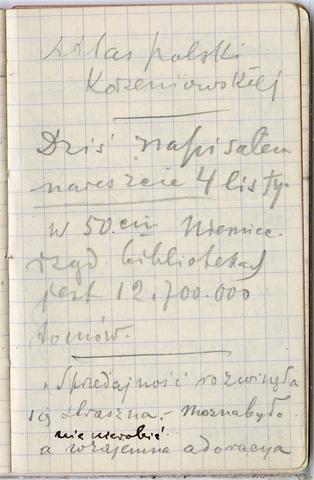 Atlas polski
Korzeniowskiej
Dziś napisałem
nareszcie 4 listy.
w 50.ciu Niemiec-
bibliotekach
jest 12.700.000
tomów.
„Sprzedajność rozwinęła
się straszna.- Możnabyło
nic nierobić
a wzajemna adoracya